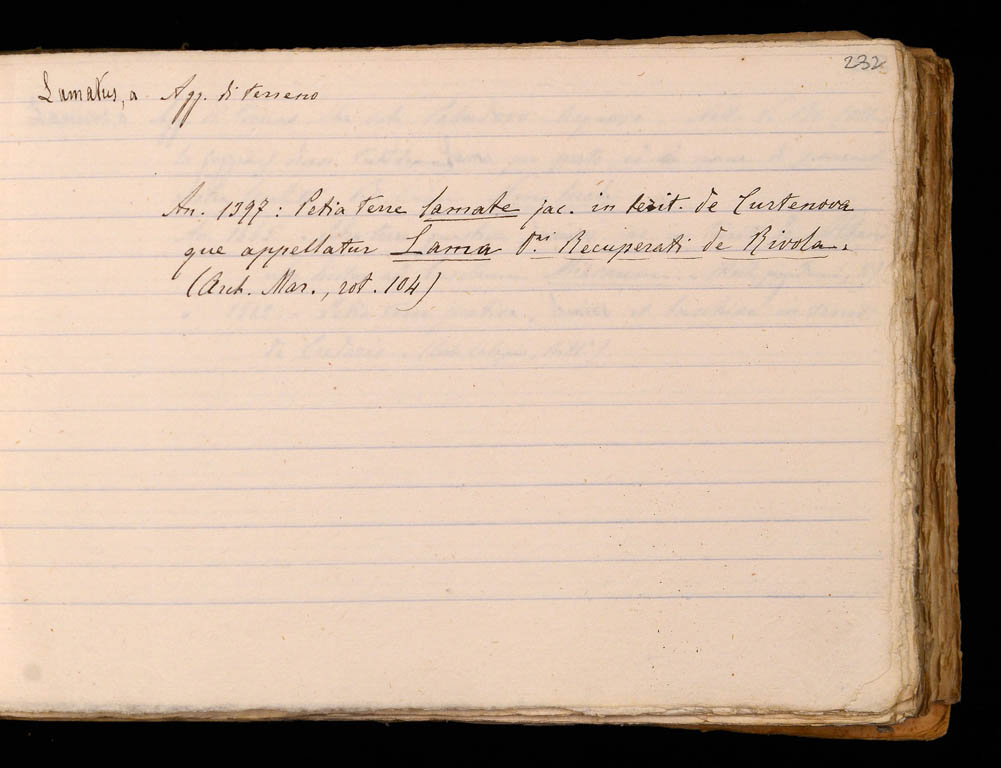 232
Lamatus, a Agg. di terreno
An. 1397: Petia terre lamate jac. in territ. de Curtenova
que appellatur Lama d.ni Recuperati de Rivola.
(Arch. Mar., rot. 104)